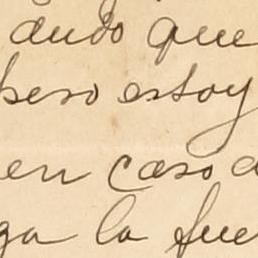 dudo que
pero estoy
en caso d
ga la fue